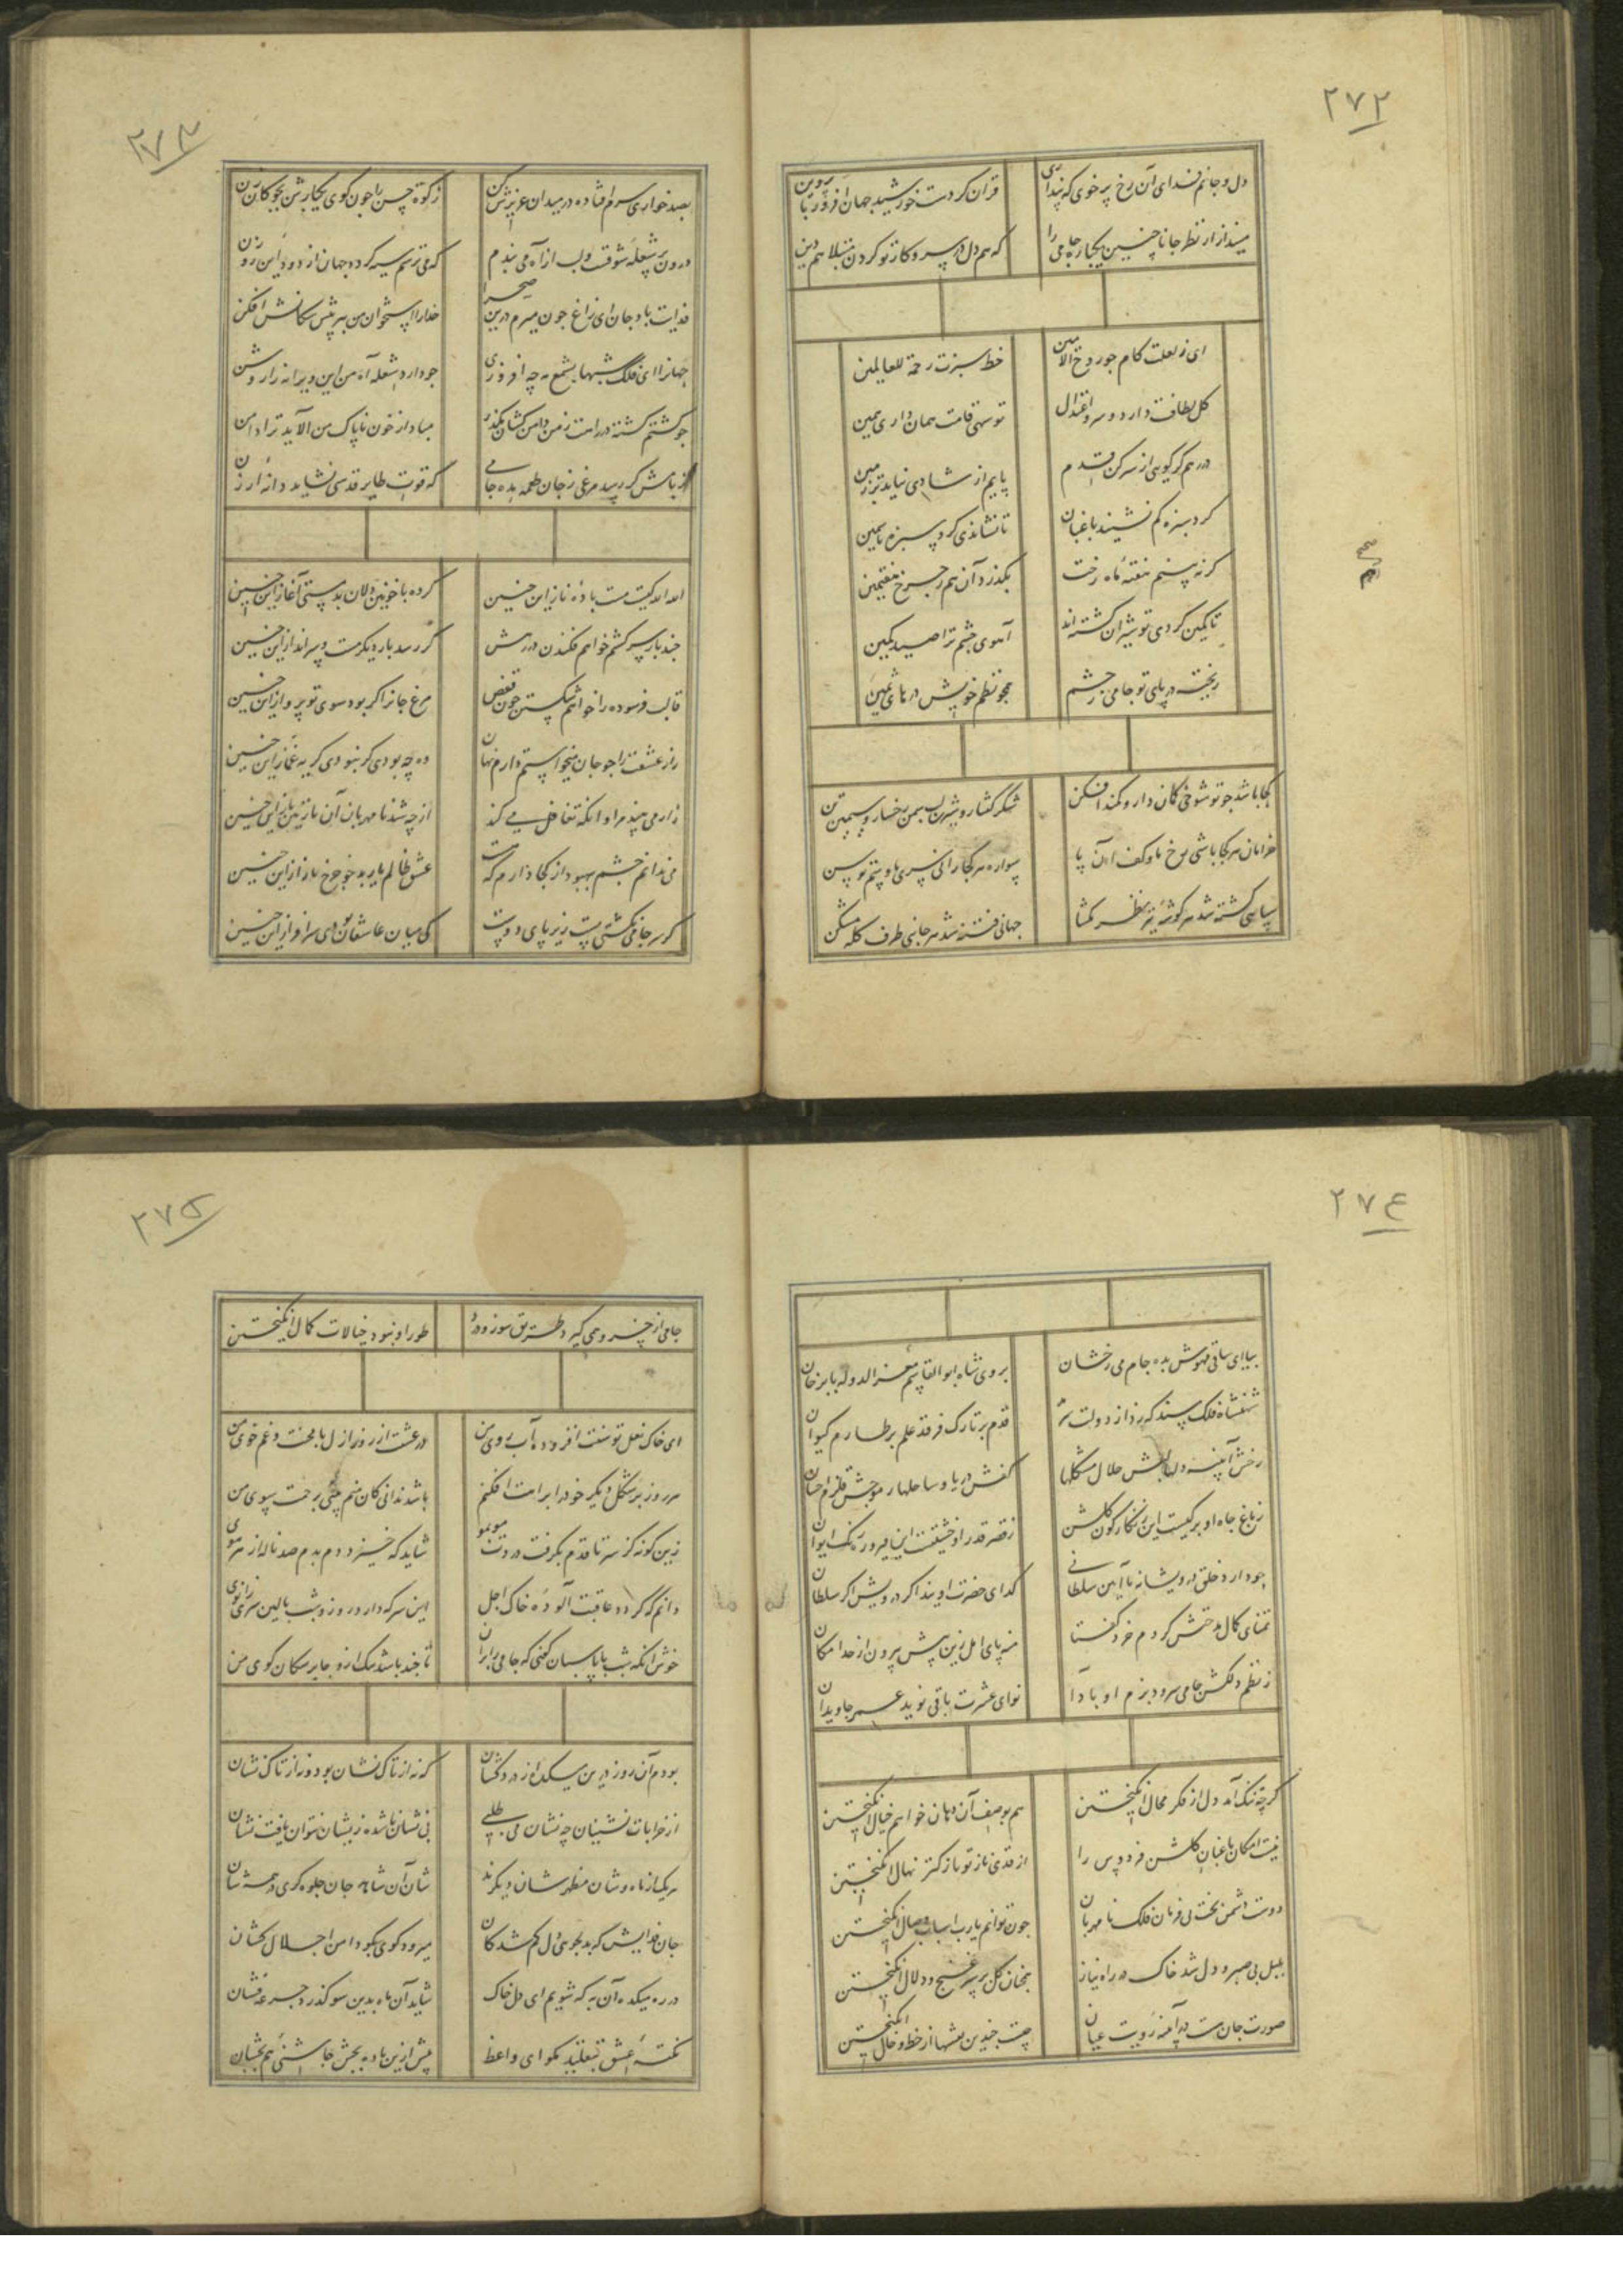 ۲۷۲
دل و جانم فدای آن رخ پر خوی که پنداری
قران کردست خورشید جهان افروز با پروین
مینداز از نظر جانا چنین یکباره جامی را
که هم دل در سر و کار تو کردن مبتلا هم دین
ای ز لعلت کام جو روح الامین
خط سبزت رحمة للعالمین
کل لطافت دارد و سرو اعتدال
تو سهی قامت همان داری همین
در رهم کر کویی از سر کن قدم
پایم از شادی نیاید بر زمین
کرد سبزه کم نشیند باغبان
تا نشاندی کرد سبزه یاسمین
کر نه بینم هفته ماه رخت
بکذرد آن هم ز چرخ هفتمین
تا کمین کردی تو شیران کشته اند
آهوی چشم ترا صید کمین
ریخته در پای تو جامی ز چشم
همچو نظم خویش درهای ثمین
کجا باشد چو تو شوخی کمان دار و کمند افکن
شکر کفتار و شیرین لب سمن رخسار و سیمین تن
خرامان هر کجا باشی رخ ما و کف آن پا
سواره هر کجا رانی سر ما و سم توسن
سپاهی کشته شد هر کوشه تیر نظر کمشا
جهانی فتنه شد هر جانبی طرف کله مشکن
۲۷۳
بصد خواری سرم افتاده در میدان عزیزش کن
زکوة حسن را چون کوی یکبارش بچوکان زن
درون پر شعله شوقت و لب از آه می بندم
که می ترسم سیه کردد جهان از دود این روزن
فدایت باد جان ای زاغ چون میرم درین صحرا
خدا را استخوان من ببر پیش سکانش افکن
جهانرا ای فلک شبها بشمع مه چه افروزی
چو دارد شعله آه من این ویرانه را روشن
چو کشتم کشته در راهت ز من دامن کشان بکذر
مباد از خون ناپاک من آلاید ترا دامن
ز بامش کر رسد مرغی ز جان طعمه بده جامی
که قوت طایر قدسی نشاید دانه ارزن
الله الله کیست مست باده ناز این چنین
کرده با خونین دلان بد مستی آغاز این چنین
چند بار سر کشم خواهم فکندن در رهش
کر رسد بار دیکر مست و سر انداز این چنین
قالب فرسوده را خواهم شکستن چون قفص
مرغ جانرا کر بود سوی تو پرواز این چنین
راز عشقت را چو جان میخواستم دارم نهان
وه چه بودی کر نبودی کریه غماز این چنین
زار می بیند مرا وانکه تغافل می کند
از چه شد نامهربان آن نازنین باز این چنین
من ندانم چشم بهبود از کجا دارم که هست
عشق ظالم یار بدخو چرخ ناساز این چنین
کر سر جامی نکشتی پست زیر پای دوست
کی میان عاشقان بودی سر افراز این چنین
۲۷۴
بیا ای ساقی مهوش بده جام می رخشان
بروی شاه ابو القاسم معز الدوله بابر خان
شهنشاه فلک مسند که زد از دولت سرمد
قدم بر تارک فرقد علم بر طارم کیوان
رخش آیینه دلها لبش حلال مشکلها
کفش دریا و ساحلها ز موجش قلزم احسان
ز باغ جاه او برکیست این زنکارکون کلشن
ز قصر قدر او خشتیست این فیروزه رنک ایوان
چو دارد خلق درویشانه با آیین سلطانی
کدای حضرت اویند اکر درویش اکر سلطان
تمنای کمال مدحتش کردم خرد کفتا
منه پای امل زین پیش بیرون از حد امکان
ز نظم دلکش جامی سرود بزم او بادا
نوای عشرت باقی نوید عمر جاویدان
کرچه تنک آمد دل از فکر محال انکیختن
هم بوصف آن دهان خواهم خیال انکیختن
نیست امکان باغبان کلشن فردوس را
از قدی نازتر نازکتر نهال انکیختن
دوست دشمن بخت بی فرمان فلک نامهربان
چون توانم یا رب اسباب وصال انکیختن
بلبل بی صبر و دل شد خاک در راه نیاز
همچنان کل بر سر غنج و دلال انکیختن
صورت جان هست در آینه رویت عیان
چیست چندین نقشها از خط و خال انکیختن
۲۷۵
جامی از خسرو همی کیرد طریق سوز و درد
طور او نبود خیالات کمال انکیختن
ای خاک نعل توسنت افزوده آب روی من
در عشقت از روز ازل با محنت و غم خوی من
هر روز بر شکل دیکر خود را براهت افکنم
باشد ندانی کان منم چشمی رحمت سوی من
زین کونه کز سر تا قدم بکرفت دردت مو بمو
شاید که خیزد دم بدم صد ناله از هر موی من
دانم که کردد عاقبت آلوده خاک اجل
این سر که دارد روز و شب بالین سر زانوی من
خوش آنکه شب با پاسبان کفتی که جامی را بران
تا چند باشد سک ازو جا بر سکان کوی من
بودم آن روز درین میکده از دردکشان
که نه از تاک نشان بود و نه از تاک نشان
از خرابات نشینان چه نشان می طلبی
بی نشان ناشده زیشان نتوان یافت نشان
هر یک از ماه وشان مظهر شان دیکرند
شان آن شاهد جان جلوه کری در همه شان
جان فدایش که بدلجوی دل کم شدکان
میرود کوی بکو دامن اجلال کشان
در ره میکده آن به که شویم ای دل خاک
شاید آن ماه بدین سو کذرد جرعه فشان
نکته عشق بتقلید مکو ای واعظ
پیش ازین باده بخش چاشنی هم بچشان